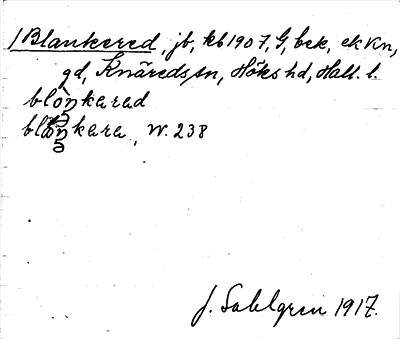 /Blankered, jb, kb 1907, G, bek, ekKn,
gd, Knäreds sn, Höks hd, Hall. l.
blåŋkarad
blåŋkara, W. 238
J. Sahlgren 1917.